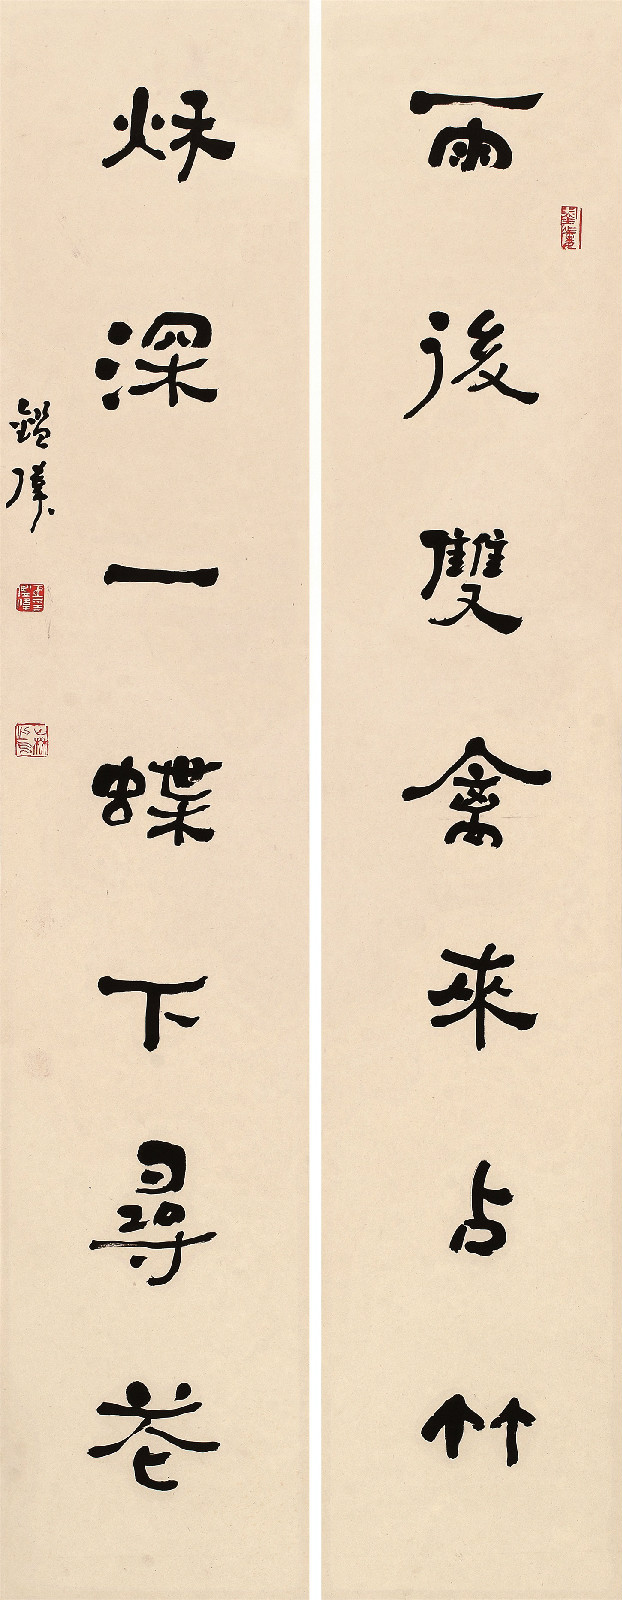 雨後雙禽來占竹
秌深一蝶下尋花